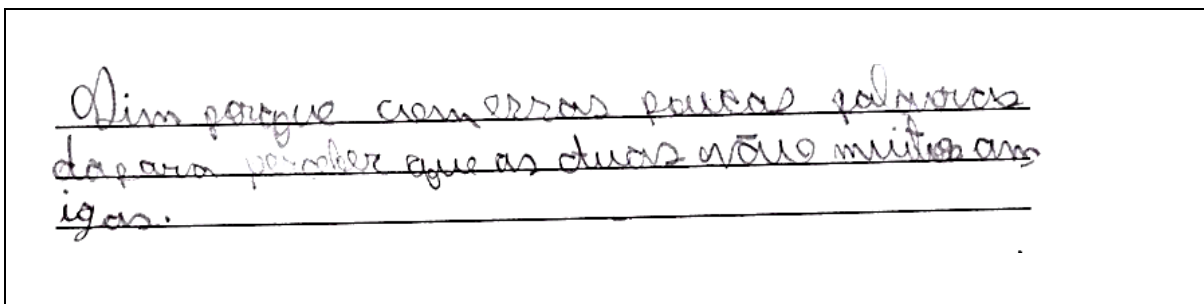 Sim porque com essas poucas palavras
dapara perceber que as duas são muitos am
igas.